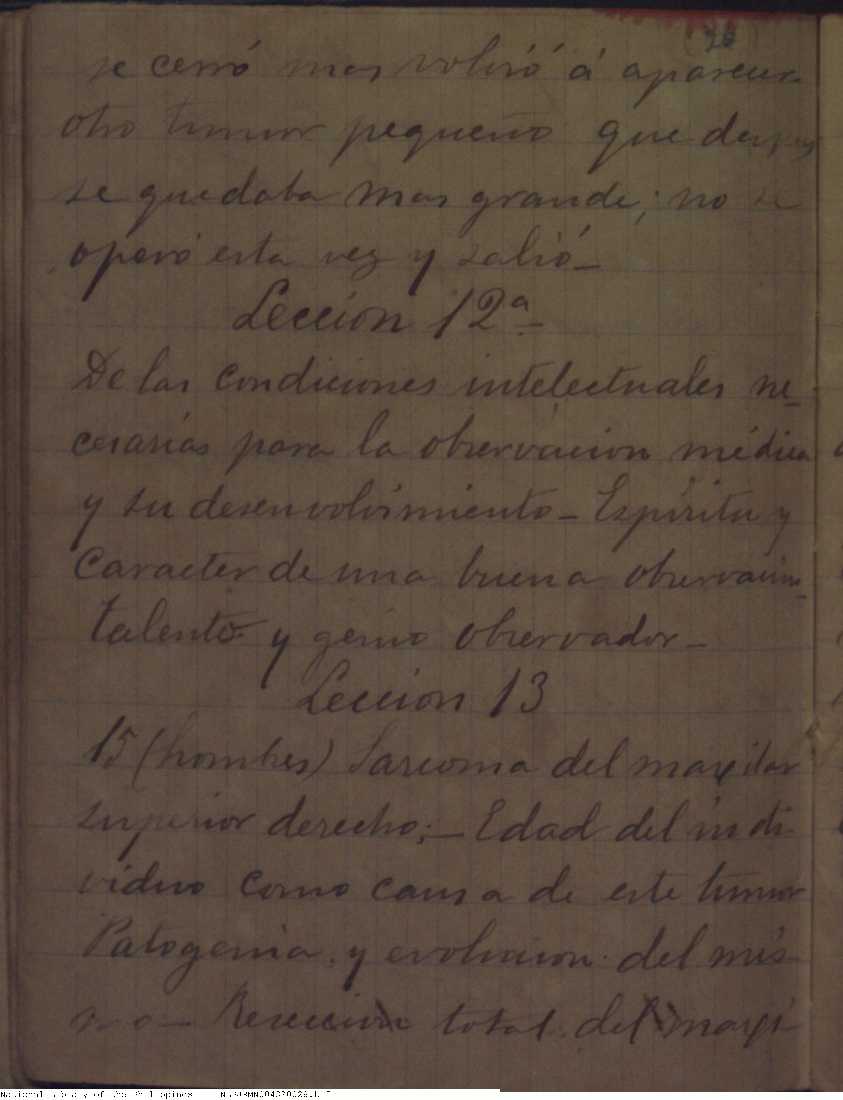 se cerró mas volvió á aparecer
otro tumor pequeño que despues
se quedaba mas grande; no se
operó esta vez y salió—
Leccion 12ª
De las condiciones intelectuales ne-
cesarias para la observacion médica
y su desenvolvimiento— Espíritu y
caracter de una buena observacion—
talento y genio observador—
Leccion 13
15 (hombres) Sarcoma del maxilar
superior derecho;— Edad del indi-
viduo como causa de este tumor
Patogenia y evolucion del mis-
mo— Reseccion total del maxi-
National Library of the Philippines